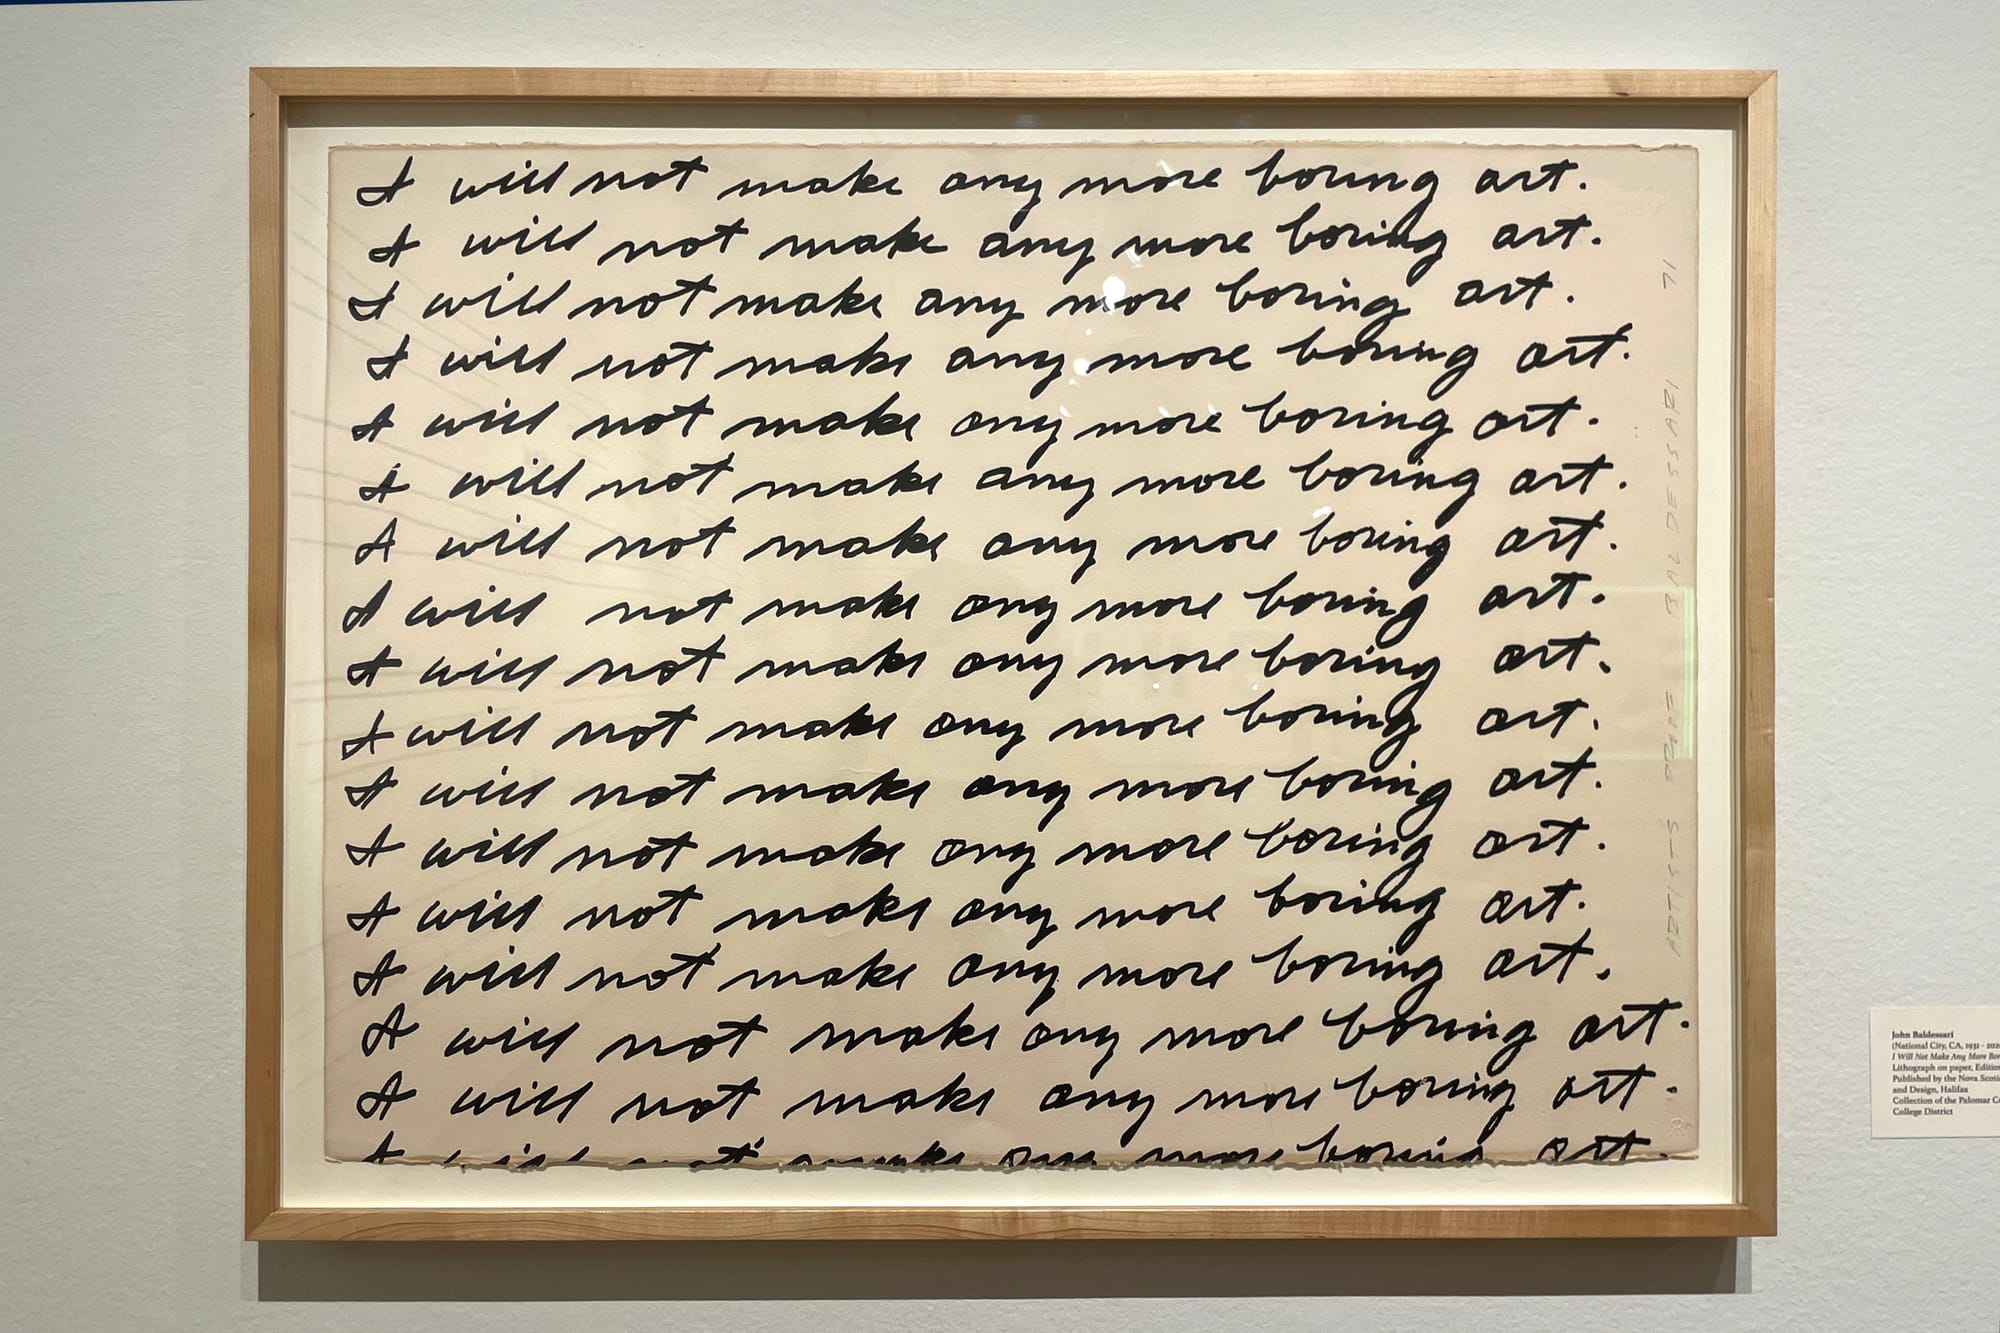 I will not make any more boring art.
I will not make any more boring art.
I will not make any more boring art.
I will not make any more boring art.
I will not make any more boring art.
I will not make any more boring art.
I will not make any more boring art.
I will not make any more boring art.
I will not make any more boring art.
I will not make any more boring art.
I will not make any more boring art.
I will not make any more boring art.
I will not make any more boring art.
I will not make any more boring art.
I will not make any more boring art.
I will not make any more boring art.
I will not make any more boring art.
ARTIST'S PROOF BALDESSARI 71
John Baldessari
(National City, CA, 1931 - 
I Will Not Make Any More
Lithograph on paper,
Published by the Nova
and Design, Halifax
Collection of the Palomar
College District